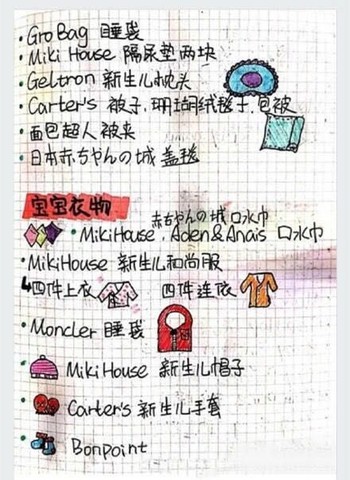 • Gro Bag 睡袋
• Miki House 隔尿垫 两块
• Geltron 新生儿枕头
• Carter's 被子,珊瑚绒毯子,包被
• 面包超人被夹
• 日本赤ちゃんの城 盖毯
宝宝衣物
赤ちゃんの城 口水巾
• MikiHouse, Aden&Anais 口水巾
• MikiHouse 新生儿和尚服
四件上衣 四件连衣
• Moncler 睡袋
• MikiHouse 新生儿帽子
• Carter's 新生儿手套
• Bonpoint